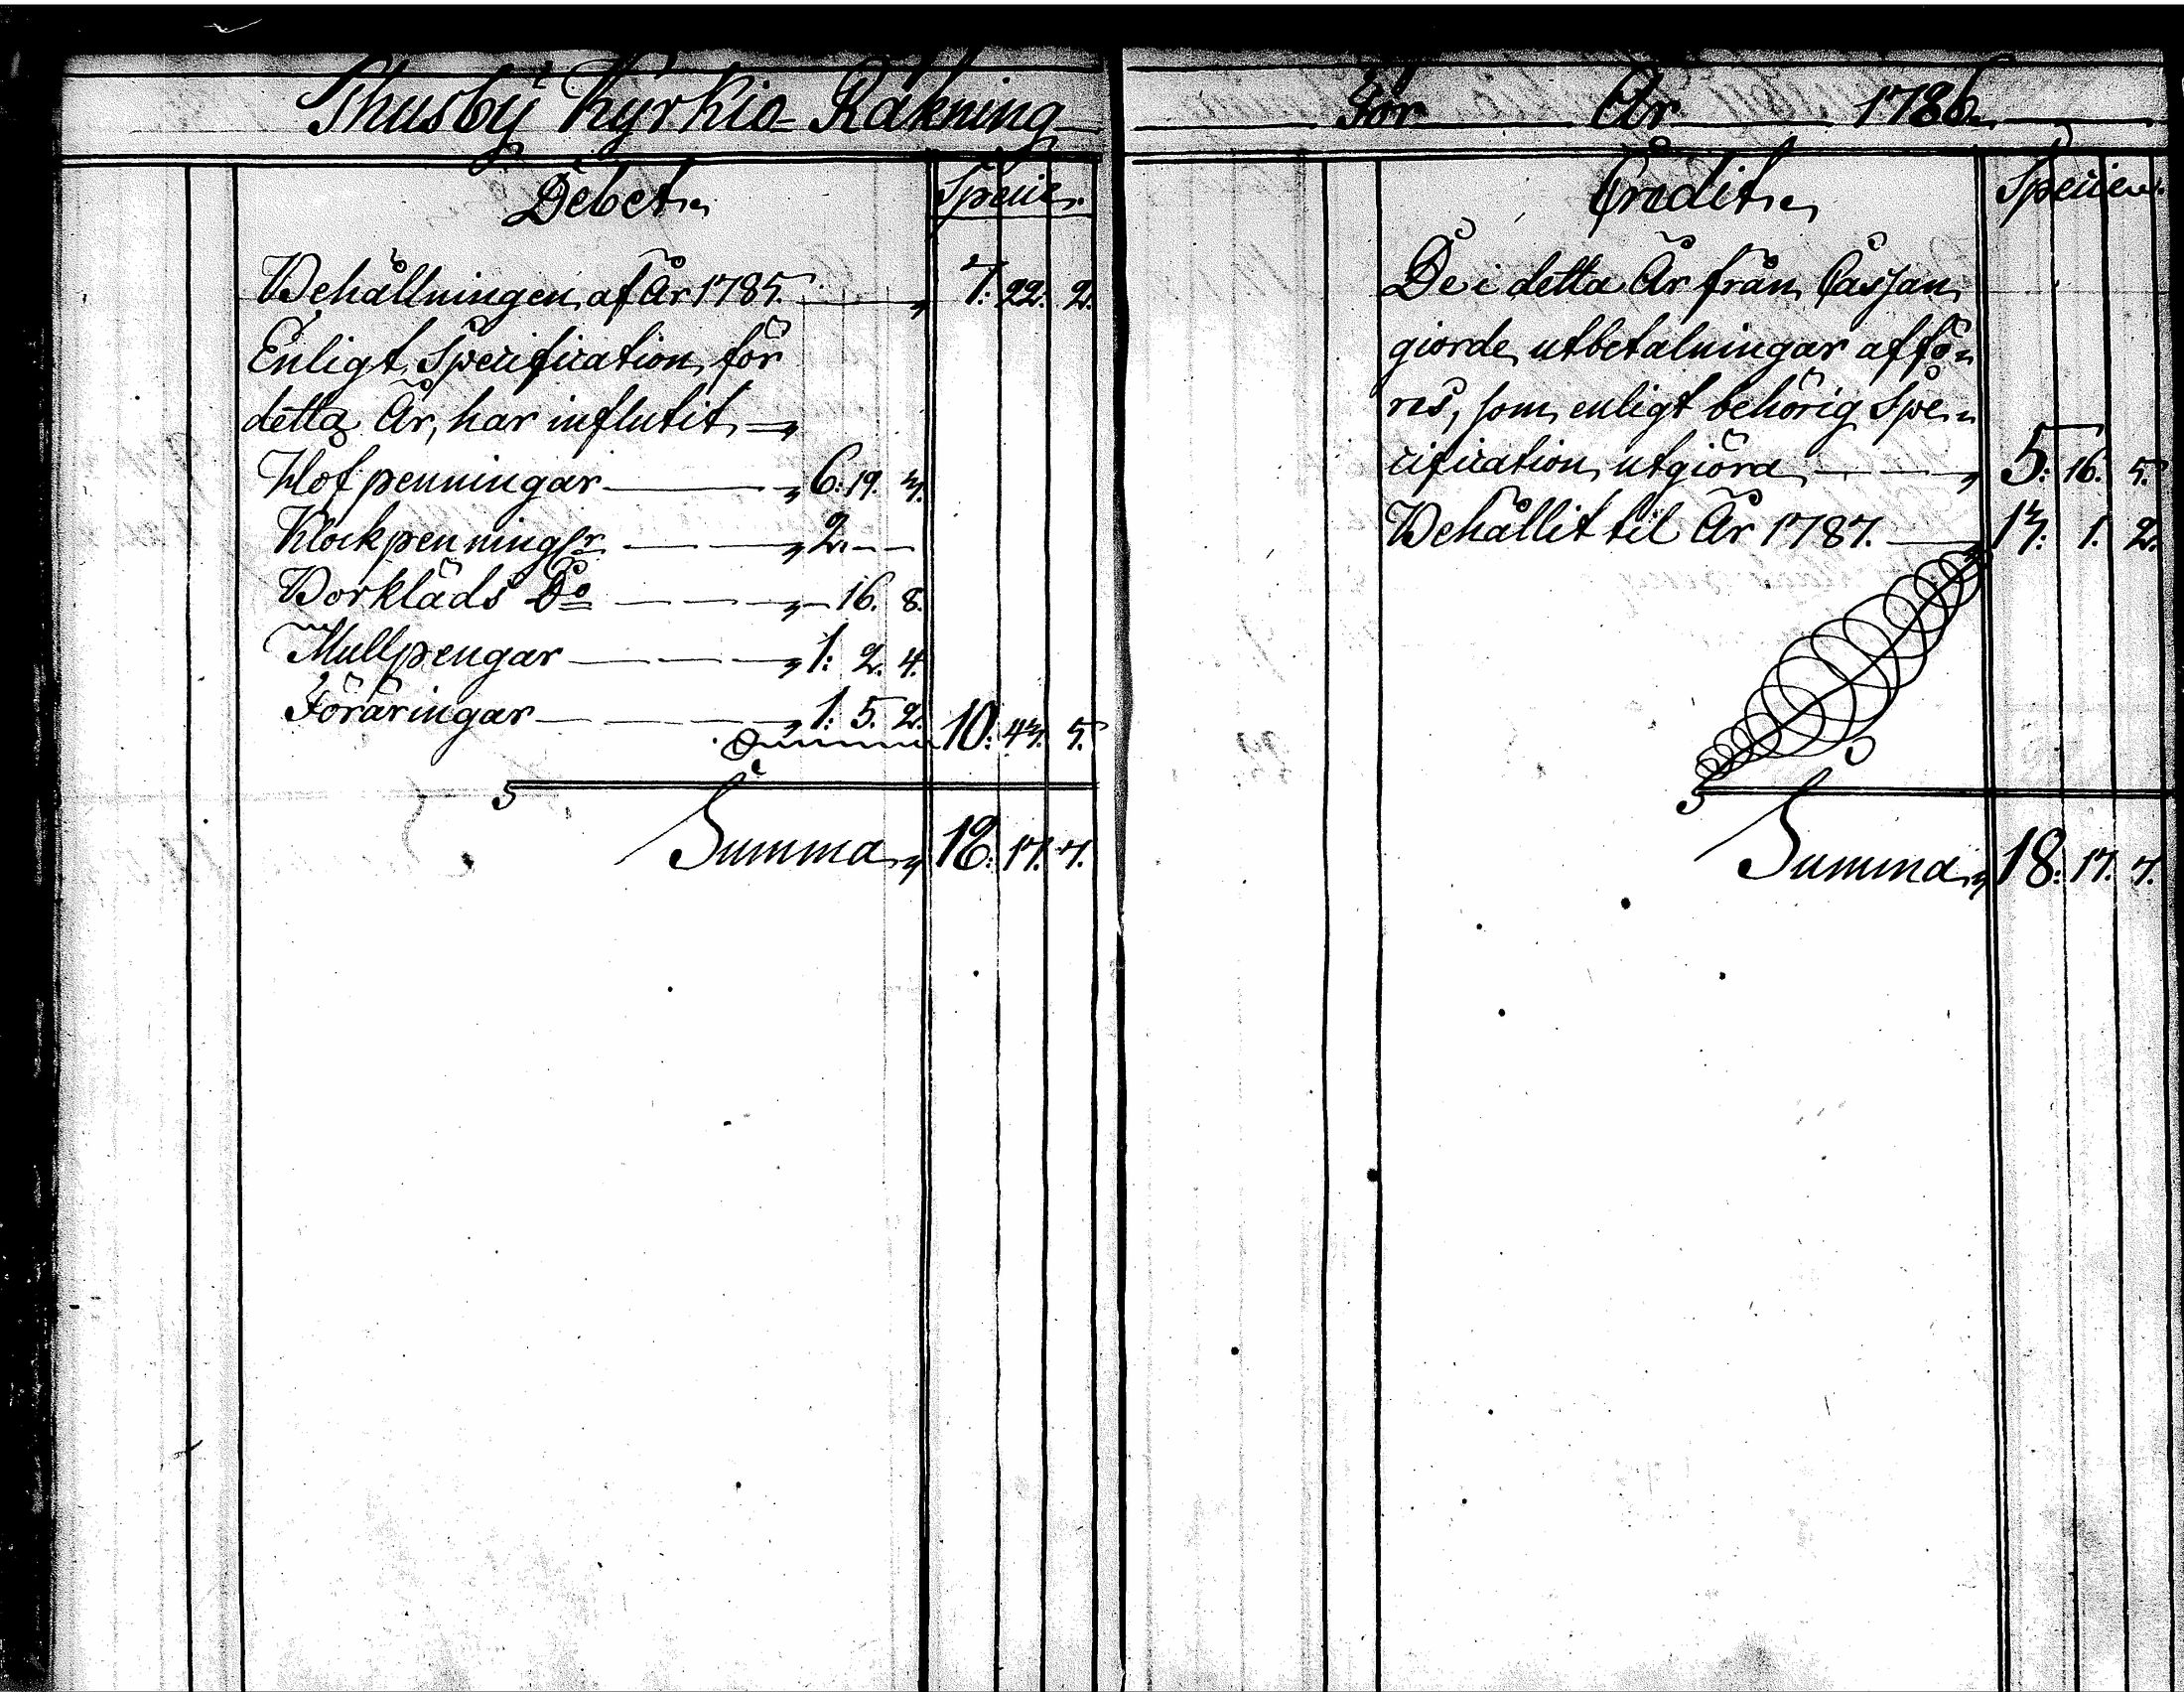 Thusby Kyrkio Räkning
Debet
Specie
Behållningen af År 1785. 7: 22. 2.
Enligt Specification för
detta År, har influtit
Håfpenningar 6: 19. 3.
Klockpenningr 2 — —
Borkläds Do 16. 8.
Mullpengar 1: 2. 4.
Föräringar 1: 5. 2. 10: 43. 5.
Summa 18: 17. 7.
För År 1786
Credit
Specier
De i detta År från Cassan
giorde utbetalningar affö-
res, som enligt behörig Spe-
cification utgiöra 5: 16. 5.
Behållit til År 1787. 13: 1. 2.
Summa 18: 17. 7.